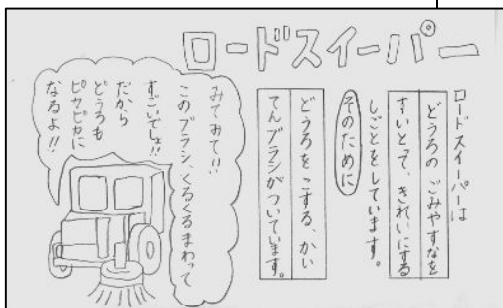 ロードスイーパー
ロードスイーパーは
どうろの ごみやすなを
すいとって、きれいにする
しごとをしています。
そのために
どうろをこする、かい
てんブラシがついています。
みてみて!!
このブラシ、くるくるまわって
すごいでしょ!!
だから
どうろも
ピカピカに
なるよ!!